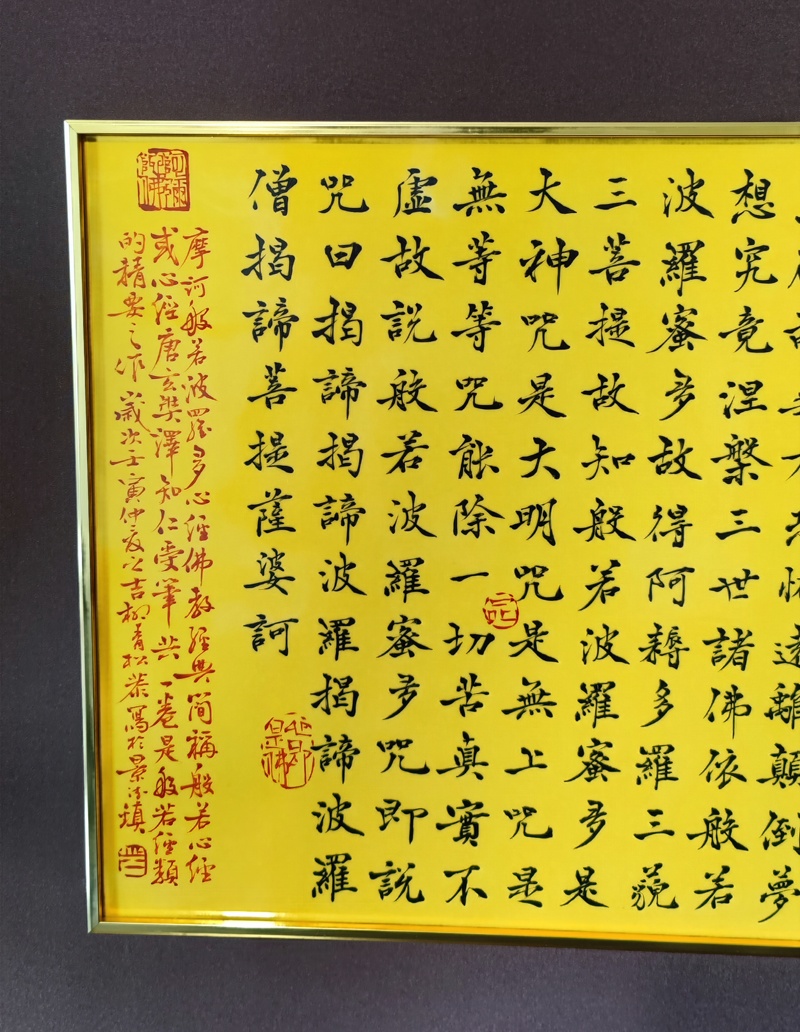 遠離顛倒夢
想究竟涅槃三世諸佛依般若
波羅蜜多故得阿耨多羅三藐
三菩提故知般若波羅蜜多是
大神咒是大明咒是無上咒是
無等等咒能除一切苦真實不
虛故說般若波羅蜜多咒即說
咒曰揭諦揭諦波羅揭諦波羅
僧揭諦菩提薩婆訶
摩訶般若波羅多心經佛教經典簡稱般若心經
或心經唐玄奘澤知仁受筆共一卷是般若經類
的精要之作歲次壬寅仲夏之吉柳青松恭寫於景德鎮
阿彌陀佛